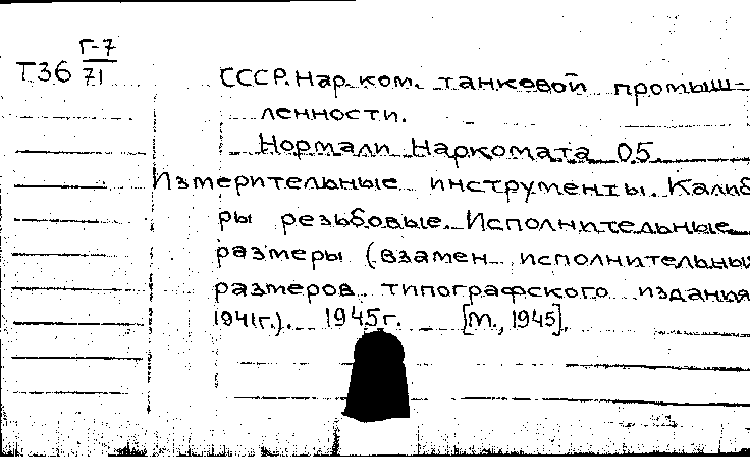 Г-7
Т36 71
СССР. Нар. ком. танковой промыш-
ленности.
Нормали Наркомата 05.
Измерительные инструменты. Калиб
ры резьбовые. Исполнительные
размеры (взамен исполнительны
размеров типографского издания
1941г.). 1945г. [М., 1945].